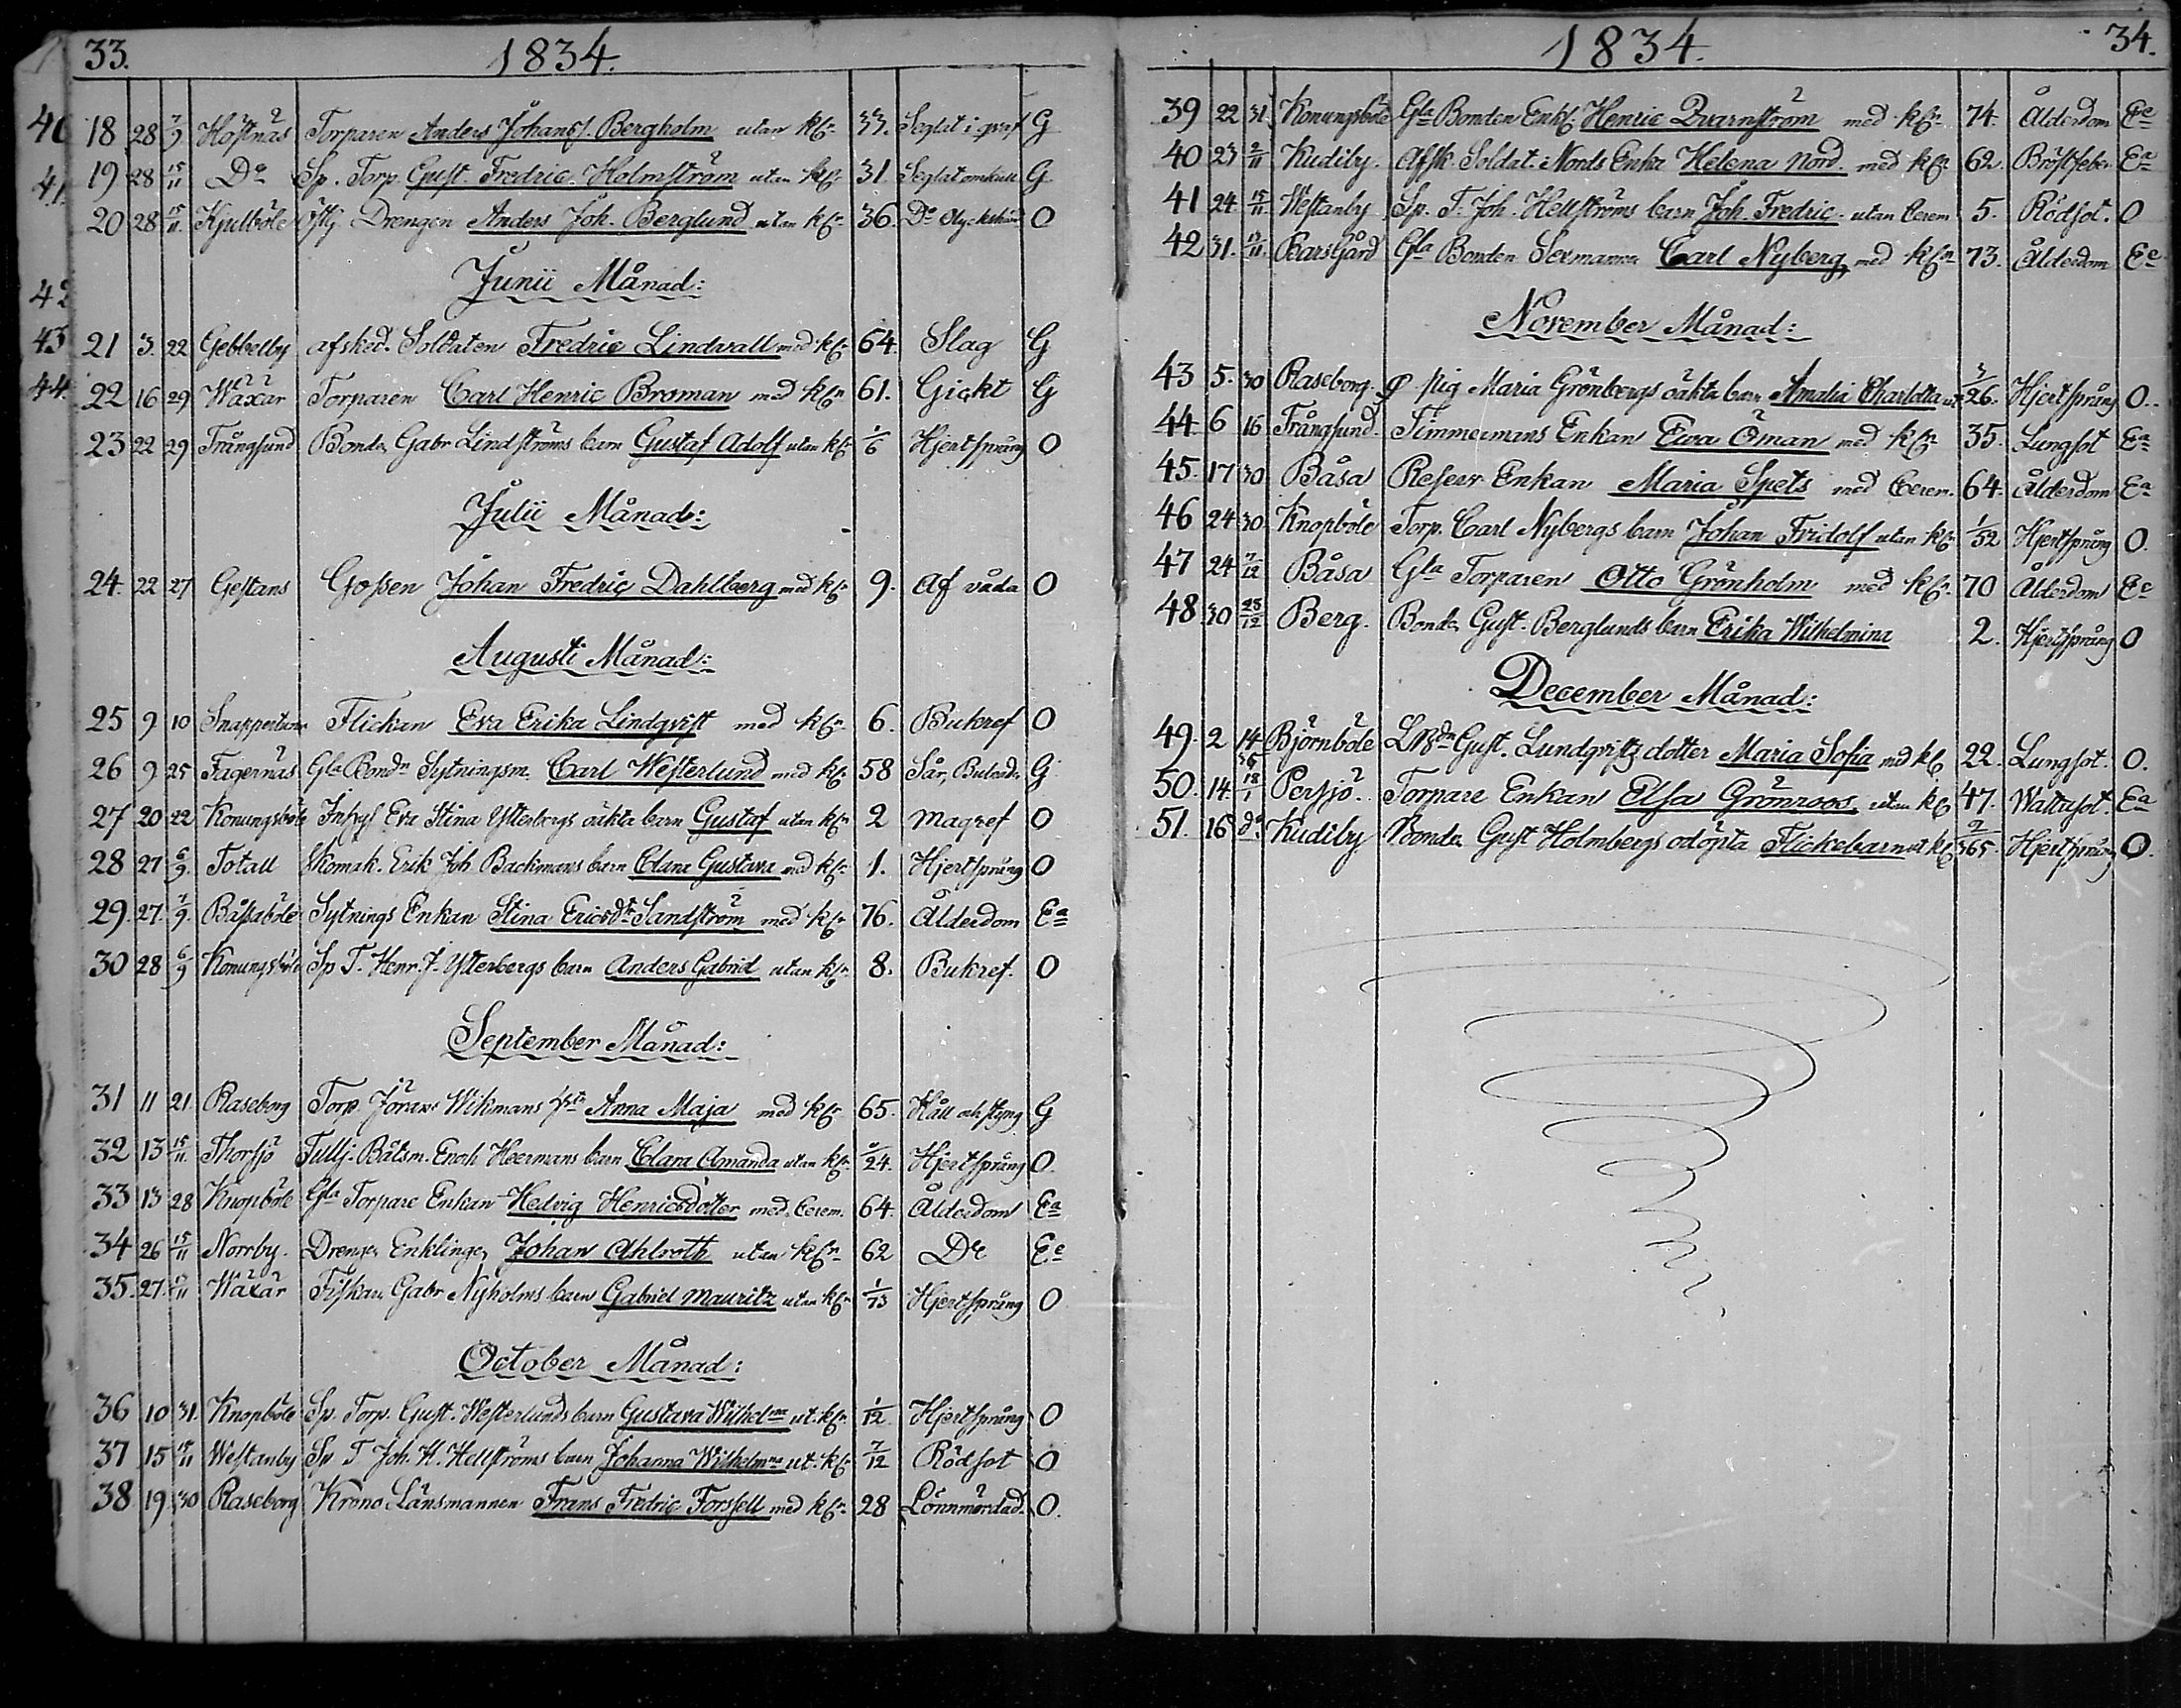 33. 1834.
18 28 7/9 Höstnäs Torparen Anders Johanss. Bergholm utan kl. 33. Seglat i qvaf G
19 28 15/11 Do Sp. Torp. Gust. Fredric Holmström utan kl. 31. Seglat omkull G
20 28 15/11 Kyulböle Drengen Anders Joh. Berglund utan kl. 36. Do Olyckshän. O
Junii Månad:
21 3. 22 Gebbelby afsked. Soldaten Fredric Lindvall med kl. 64. Slag G
22 16 29 Wäxär Torparen Carl Henric Broman med kl. 61. Gickt G
23 22 29 Trångsund Bonden Gabr Lindströms barn Gustaf Adolf utan kl. 1/6 Hjertsprång O
Julii Månad:
24. 22 27 Gestans Gossen Johan Fredric Dahlberg med kl. 9. Af våda O
Augusti Månad:
25 9 10 Snappertuna Flickan Eva Erika Lindqvist med kl. 6. Bukref O
26 9 25 Fagernäs Gla Bondn Sytningsm. Carl Westerlund med kl. 58 Sår, G
27 20 22 Konungsböle Inhys Eva Stina Ytterbergs oäkta barn Gustaf utan kl. 2 Magref O
28 27 6/9 Totall Skomak. Erik Joh Backmans barn Clara Gustava med kl. 1. Hjertsprång O
29. 27. 7/9. Båssaböle Sytnings Enkan Stina Ericsdtr Sandström med kl. 76. Ålderdom Ea
30 28 6/9 Konungsböle Sp T. Henr. J. Ytterbergs barn Anders Gabriel utan kl. 8. Bukref. O
September Månad:
31 11 21 Raseborg Torp. Jörans Wikmans Anna Maja med kl. 65. Håll och styng G
32 13 15/11 Thorsjö Tullj. Båtsm. Enoch Heermans barn Clara Amanda utan kl. 5/24. Hjertsprång O.
33 13 28 Knopböle Gla Torpare Enkan Hedvig Henricsdotter med Cerem. 64. Ålderdom Ea
34 26 15/11 Norrby. Drengen Enklingen Johan Ahlroth utan kl. 62 Do Ee
35. 27. 17/11 Wäxär Fiskaren Gabr Nyholms barn Gabriel Mauritz utan kl. 1/73 Hjertsprång O
October Månad:
36 10 31. Knopböle Sp. Torp. Gust. Westerlunds barn Gustava Wilhelna ut. kl. 1/12 Hjertsprång O
37 15 15/11 Westanby Sp. T Joh. H. Hellströms barn Johanna Wilhelmna ut. kl. 7/12 Rödsot O
38 19 30 Raseborg Krono Länsmannen Frans Fredric Forssell med kl. 28 Lönnmördad. O.
40
41.
42
43
44.
1834. 34.
39 22 31. Konungsböle Gla Bonden Enkl. Henric Qvarnström med kl. 74. Ålderdom Ee
40 23 2/11 Kudiby. Afsk. Soldat. Nords Enka Helena Nord. med kl. 62. Bröstfeber Ea
41 24. 15/11 Westanby Sp. T. Joh. Hellströms barn Joh. Fredric. utan Cerem. 5. Rödsot. O
42 31. 15/11. BarsGård Gla Bonden Sexmannen Carl Nyberg med kl. 73. Ålderdom Ee
November Månad:
43 5. 30 Raseborg. Pig Maria Grönbergs oäkta barn Amalia Charlotta ut 3/26. Hjertsprång O.
44 6 16 Trångsund. Timmermans Enkan Ewa Öman med kl. 35. Lungsot Ea
45. 17 30 Båsa Reserv Enkan Maria Spets med Cerem. 64. Ålderdom Ea
46 24 30. Knopböle Torp. Carl Nybergs barn Johan Fridolf utan kl. 1/52 Hjertsprång O.
47 24 7/12 Båsa Gla Torparen Otto Grönholm med kl. 70 Ålderdom Ee
48 30 25/12 Berg. Bonden Gust. Berglunds barn Erika Wilhelmina 2. Hjertsprång O
December Månad:
49. 2 14 Björnböle Gust. Lundqvists dotter Maria Sofia med kl 22. Lungsot. O.
50. 14. 18/1 Persjö. Torpare Enkan Elsa Grönroos utan kl 47. Wattusot. Ea
51. 16 do Kudiby Bonden Gust Holmbergs odöpta Flickebarn ut kl 2/365. Hjertsprång O.